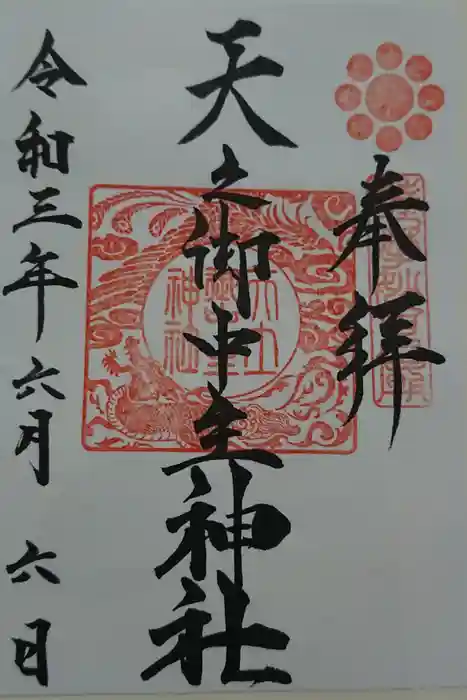 奉拝
天之御中主神社
令和三年六月六日